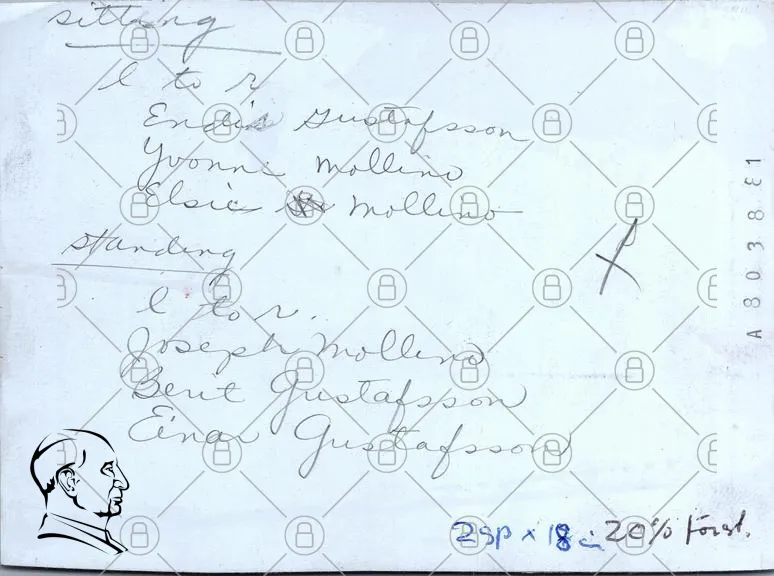 sitting
l to r
Endis Gustafsson
Yvonne Mollino
Elsie Mollino
standing
l to r.
Joseph Mollino
Berit Gustafsson
Einar Gustafsson
A 8 0 3 8 8 1
2sp x 18 20% först.